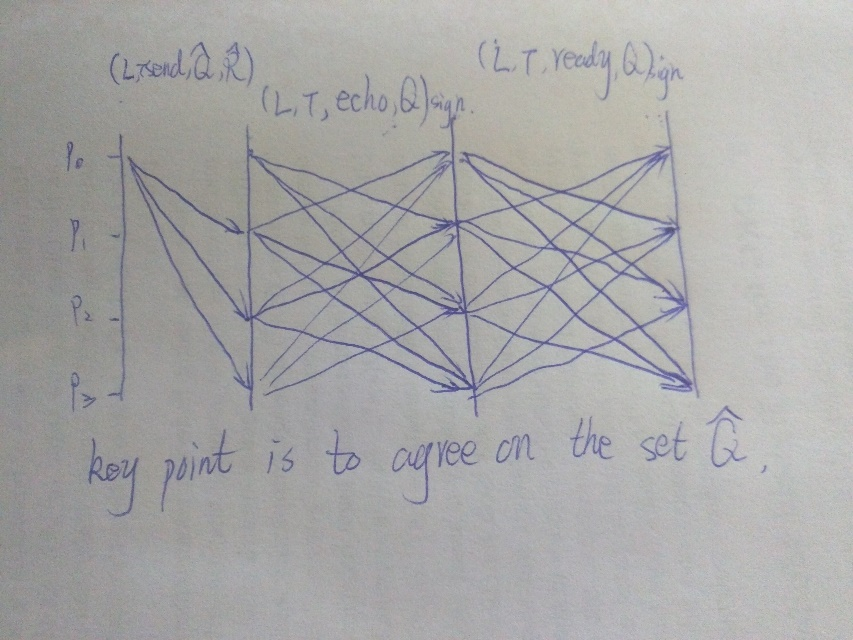 (L,τ,send,Q̂,R̂)
(L,τ,echo,Q)sign.
(L,τ,ready,Q)sign
P₀
P₁
P₂
P₃
key point is to agree on the set Q̂.